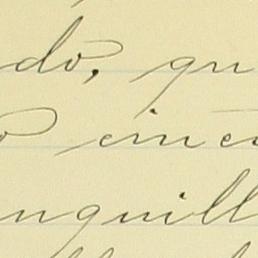 do, qu
o cinc
nquill